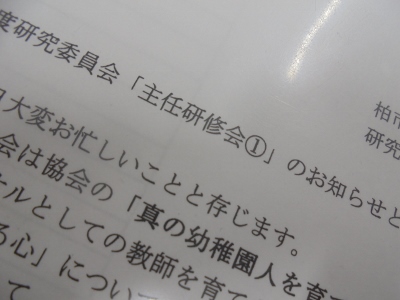 度研究委員会「主任研修会①」のお知らせと
柏市
研究
日大変お忙しいことと存じます。
会は協会の「真の幼稚園人を育て
ルとしての教師を育て
る心」について
て